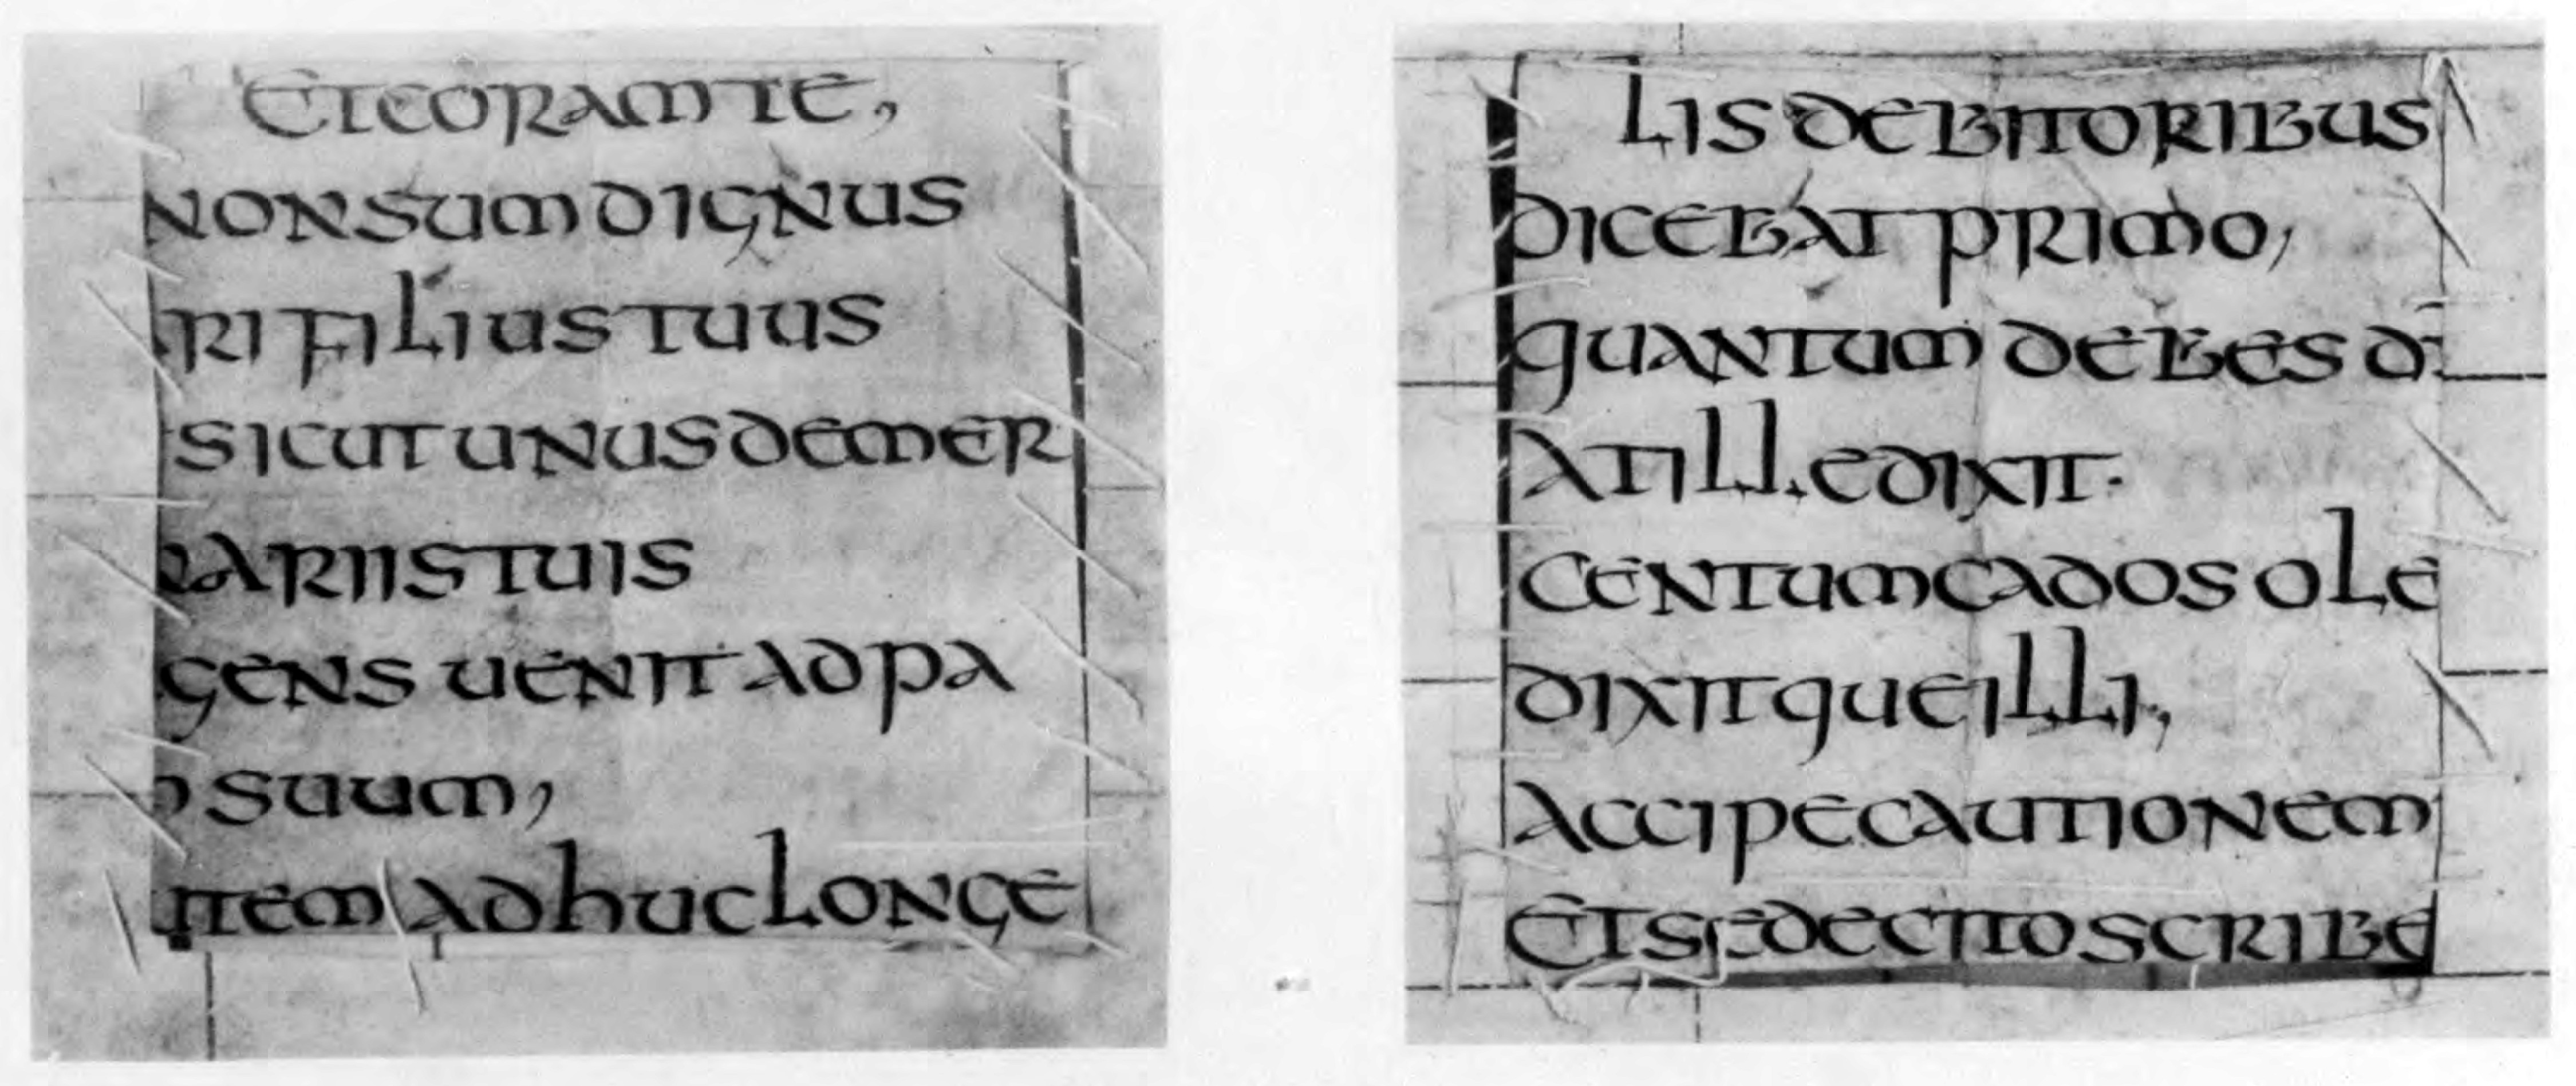 ETCORAMTE,
NONSUMDIGNUS
RI FILIUS TUUS
SICUT UNUS DE MER
ARIIS TUIS
GENS UENIT AD PA
SUUM,
ITEM ADHUC LONGE
LIS DEBITORIBUS
DICEBAT PRIMO,
QUANTUM DEBES D
AT ILLE DIXIT·
CENTUM CADOS OLE
DIXITQUE ILLI,
ACCIPE CAUTIONEM
ET SEDE CITO SCRIBE